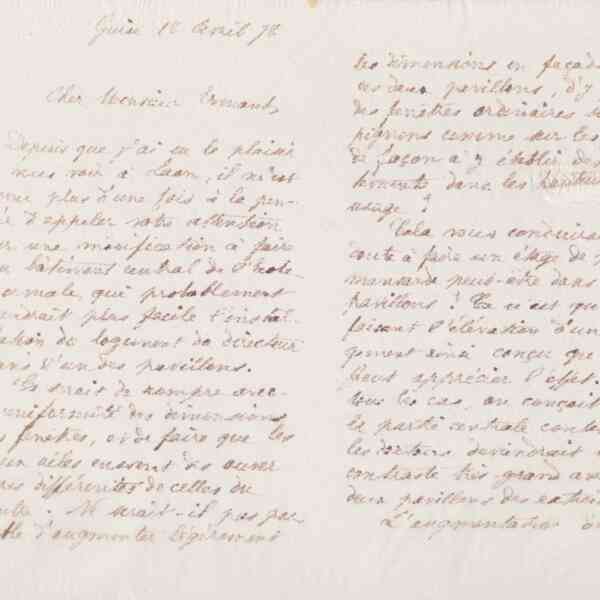 Guise 18 Avril 78
Cher Monsieur Ermant,
Depuis que j'ai eu le plaisir
vous voir à Laon, il n'est
plus d'une fois à la pen-
d'appeler votre attention
une modification à faire
bâtiment central de l'école
normale, qui probablement
rendrait plus facile l'instal-
lation du logement du directeur
dans l'un des pavillons.
Ce serait de rompre avec
l'uniformité des dimensions
fenêtres, et de faire que les
deux ailes eussent des ouver
tures différentes de celles du
centre. Ne serait-il pas pos-
sible d'augmenter légèrement
les dimensions en façade
ces deux pavillons, d'y
des fenêtres ordinaires
pignons comme sur les
de façon à y établir des
tements dans les hauteurs
usage ?
Cela nous conduirait
coute à faire un étage de
mansard peut-être dans
pavillons ! Ce n'est que
faisant l'élévation d'un
gement ainsi conçu que
peut apprécier l'effet.
tous les cas, on conçoit
la partie centrale conte
les dortoirs deviendrait
contraste très grand avec
deux pavillons des extré
L'augmentation